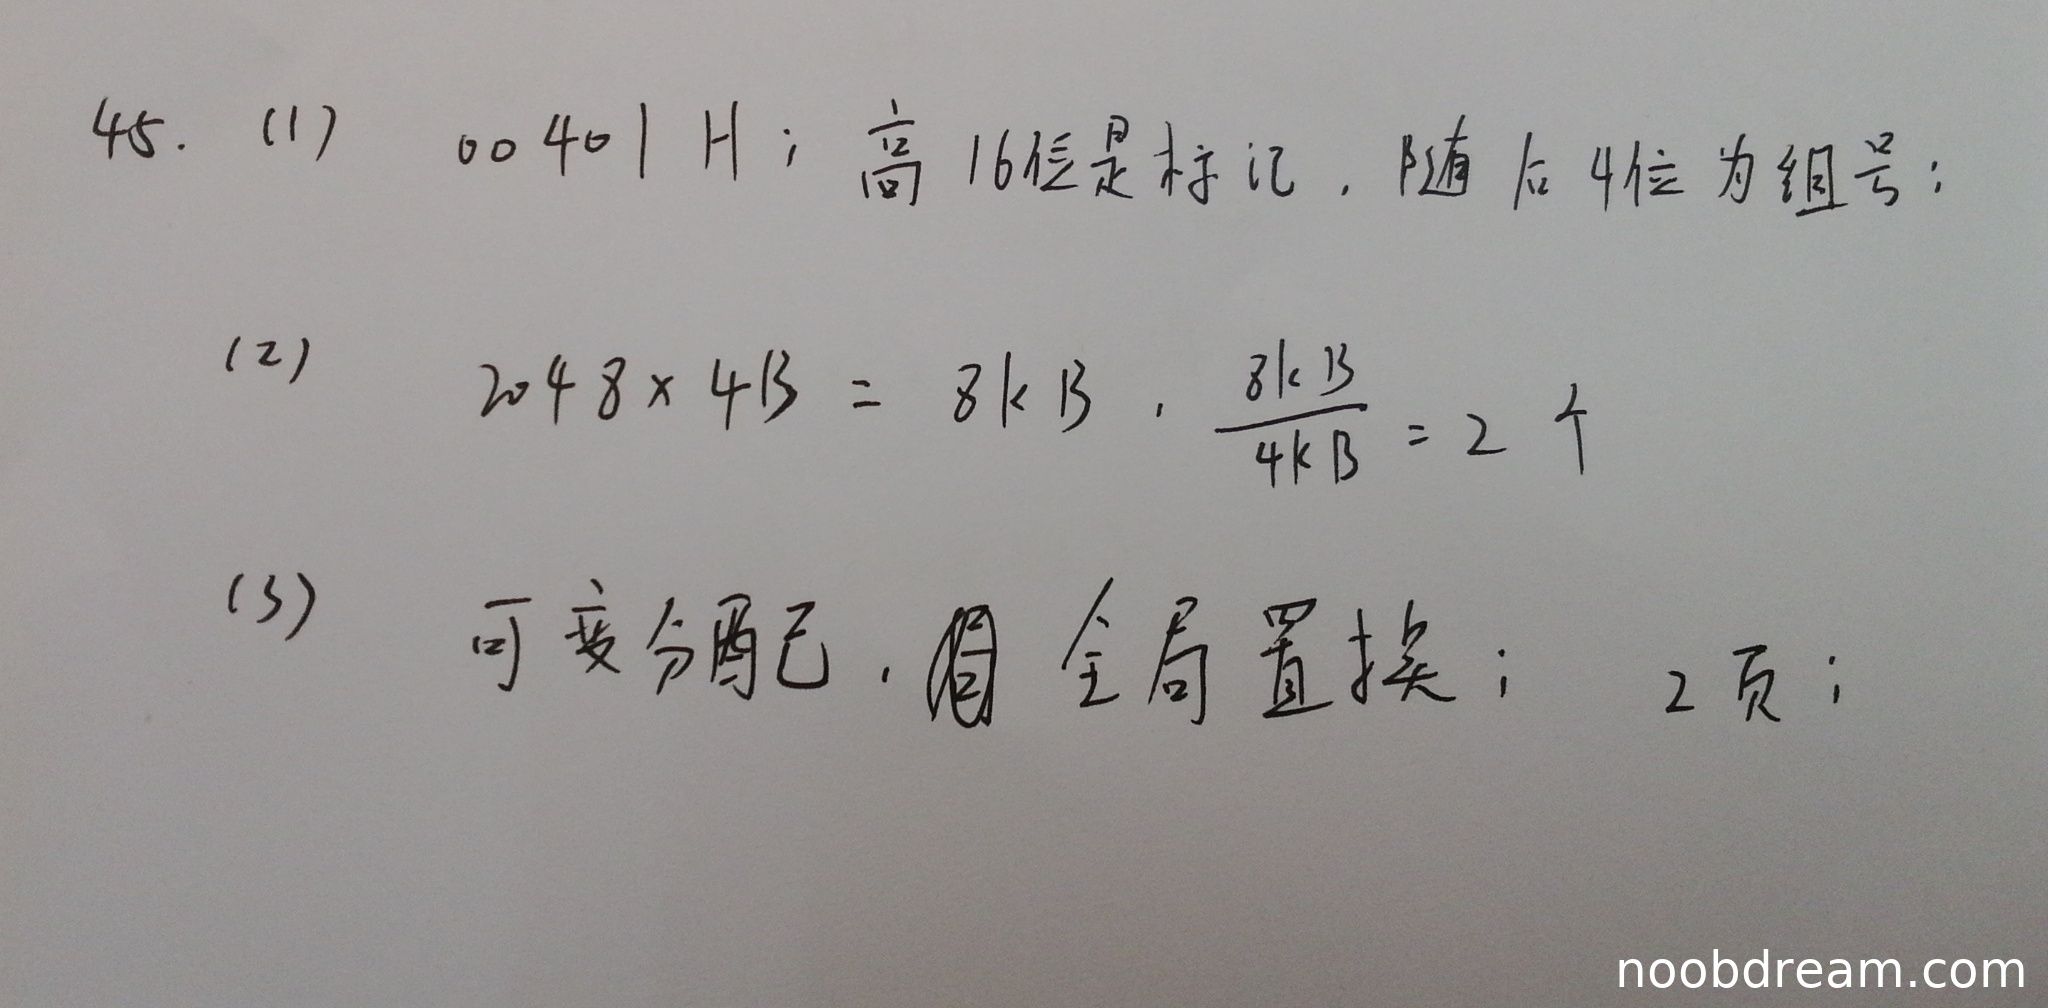 45. (1) 00401H; 高16位是标记, 随后4位为组号;
(2) 2048×4B = 8kB, 8kB/4kB = 2个
(3) 可变分配, 全局置换; 2页;
noobdream.com